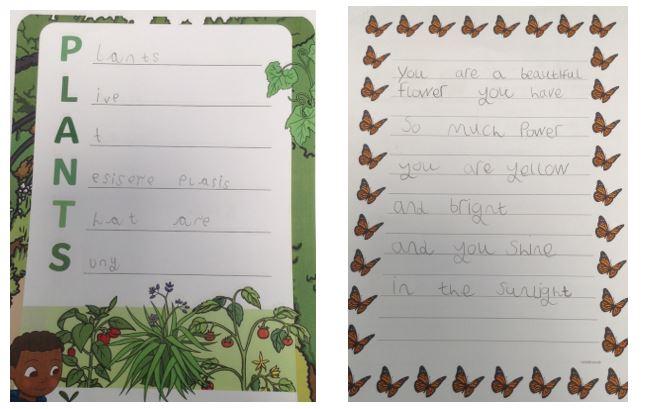 P lants
L ive
A t
N esisere plasis
T hat are
S uny
you are a beautiful
flower you have
So much Power
you are yellow
and bright
and you Shine
in the Sunlight